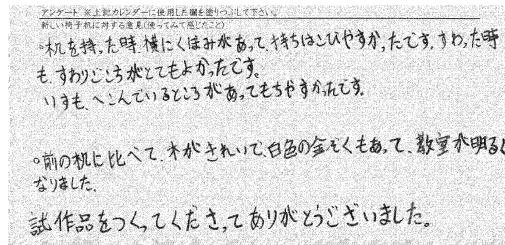 アンケート ※上記カレンダーに使用した欄を塗りつぶして下さい。
新しい椅子机に対する意見(使ってみて感じたこと)
○机を持った時、横にくぼみがあって、持ちはこびやすかったです。すわった時
も、すわりごこちがとてもよかったです。
いすも、へこんでいるところがあってもちやすかったです。
○前の机に比べて、木がきれいで、白色の金ぞくもあって、教室が明るく
なりました。
試作品をつくってくださってありがとうございました。